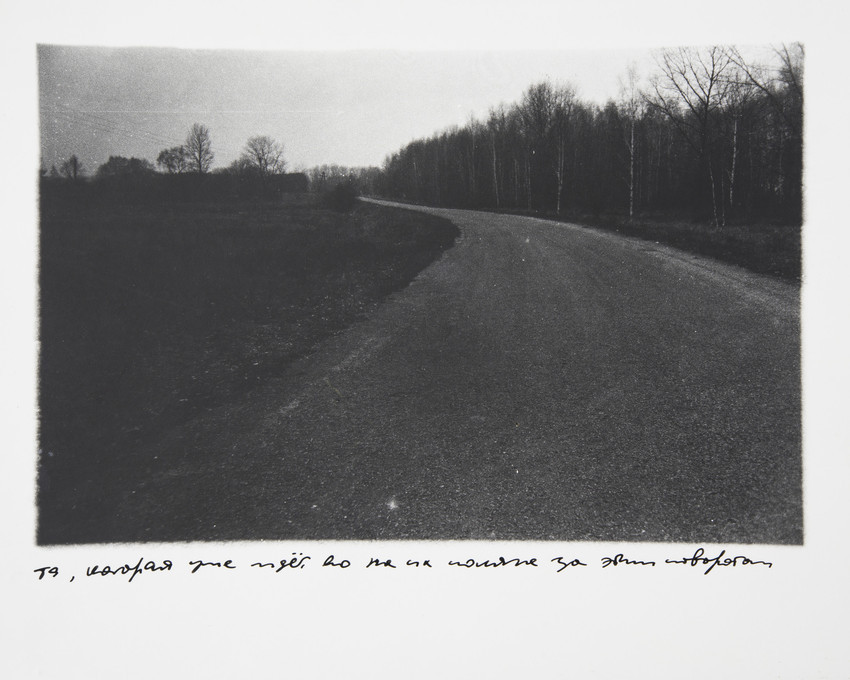 та, которая уже идёт, но на поляне за этим поворотом